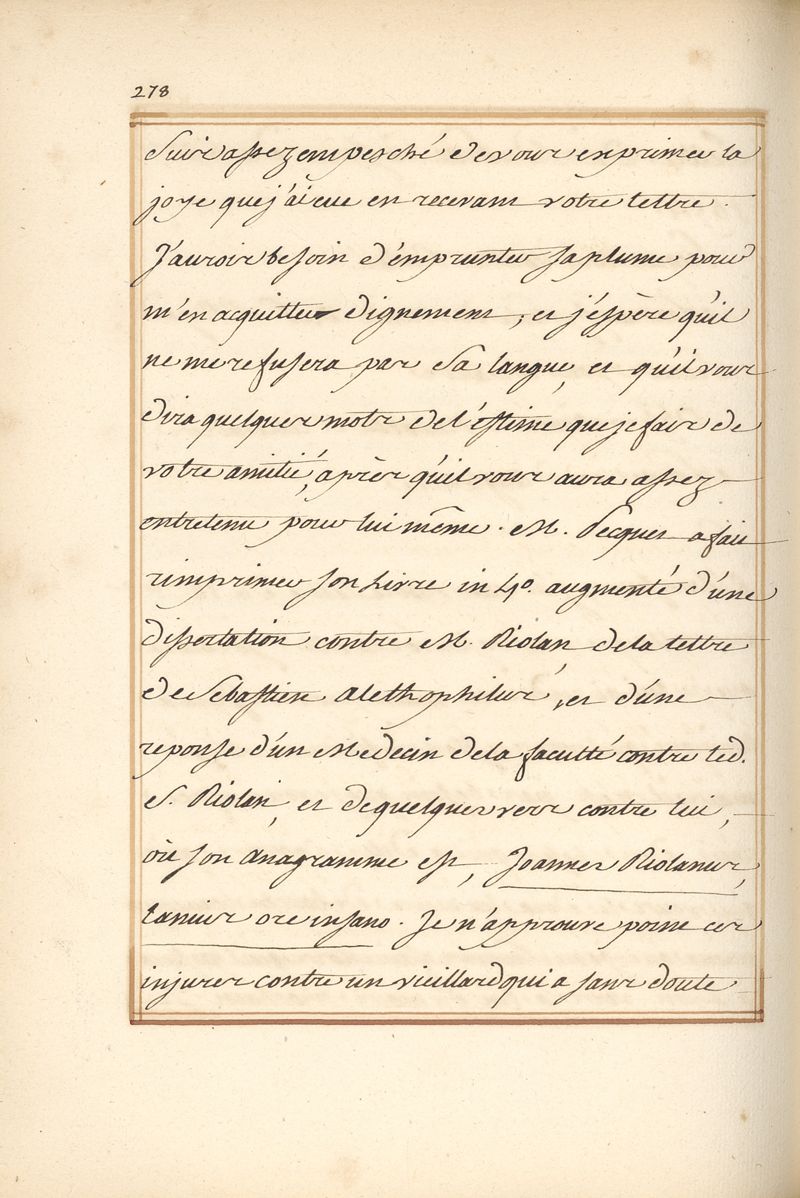 278
suis assez empesché de vous exprimer la
joye que j'ai eue en recevant votre lettre.
J'aurois besoin d'emprunter sa plume pour
m'en acquitter dignement, et j'éspère qu'il
ne me refusera pas sa langue, et qu'il vous
dira quelques mots de l'éstime que je fais de
votre amitié, après qu'il vous aura assez
entretenu pour lui même. M. Pecquet a fait
rimprimer son Livre in 4º. augmenté d'une
dissertation contre M. Riolan, de la lettre
de Sébastien Alethophilus, et d'une
reponse d'un Medecin de la faculté contre led.
S. Riolan, et de quelques vers contre lui,
où son anagramme est, Joannes Riolanus,
lanius ore insano. Je n'approuve point ces
injures contre un vieillard qui a sans doute